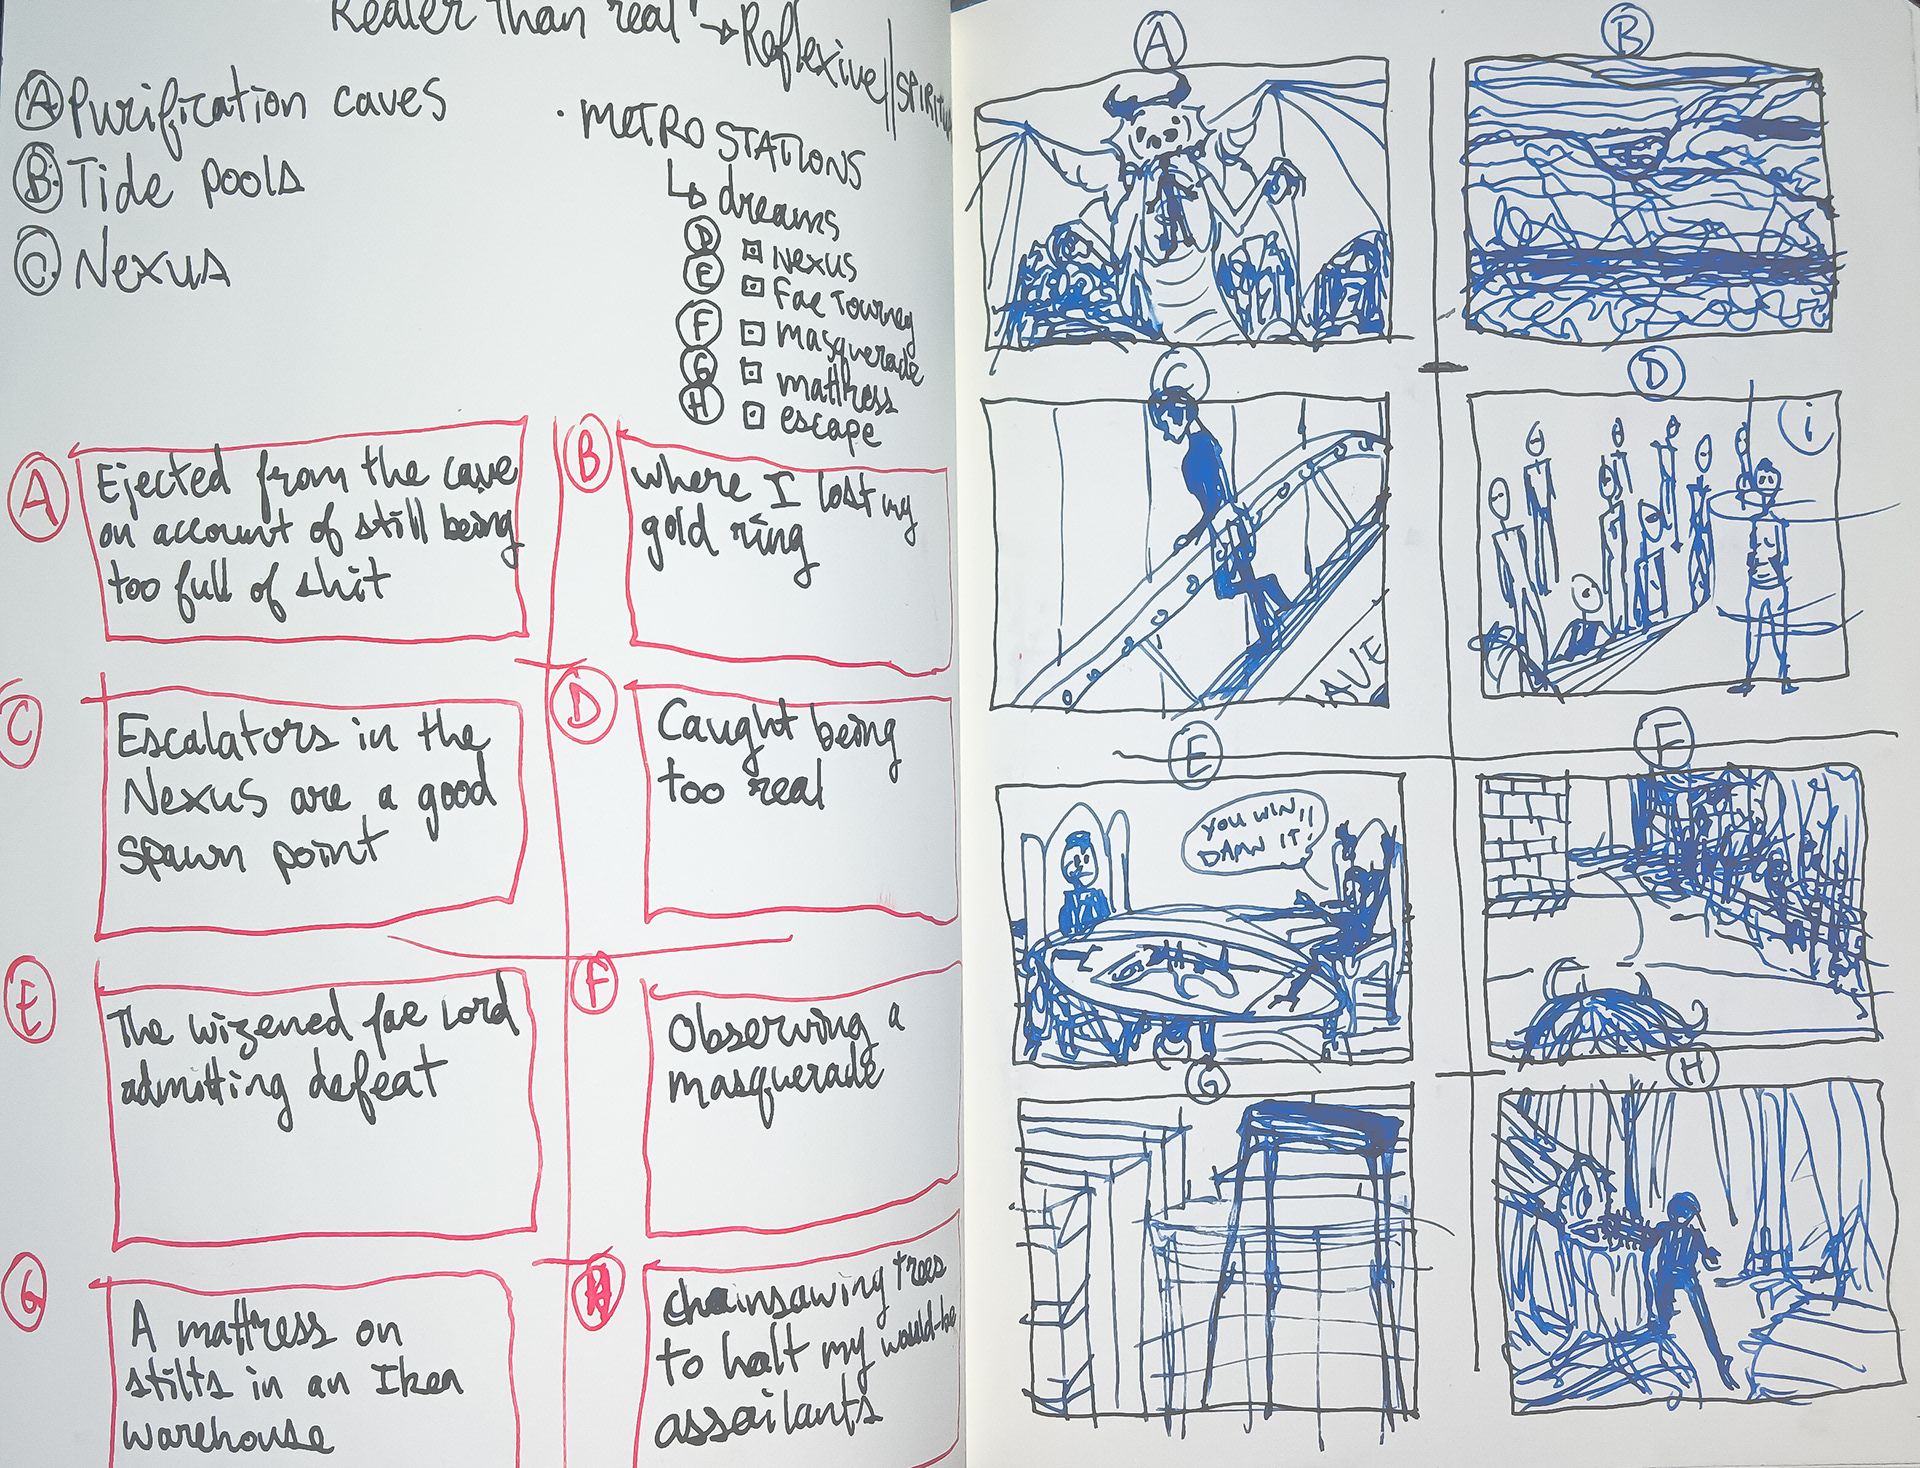 Realer than real → Reflexive || SPIRIT
Ⓐ Purification caves
Ⓑ Tide pools
Ⓒ Nexus
· METRO STATIONS
↳ dreams
Ⓓ Nexus
Ⓔ Fae Tourney
Ⓕ masquerade
Ⓖ mattress
Ⓗ escape
Ⓐ
Ejected from the cave
on account of still being
too full of shit
Ⓑ
where I lost my
gold ring
Ⓒ
Escalators in the
Nexus are a good
spawn point
Ⓓ
Caught being
too real
Ⓔ
The wizened fae lord
admitting defeat
Ⓕ
Observing a
masquerade
Ⓖ
A mattress on
stilts in an Ikea
warehouse
Ⓗ
chainsawing trees
to halt my would-be
assailants
Ⓐ
Ⓑ
Ⓒ
Ⓓ
i
Ⓔ
YOU WIN!!
DAMN IT!
Ⓕ
Ⓖ
Ⓗ